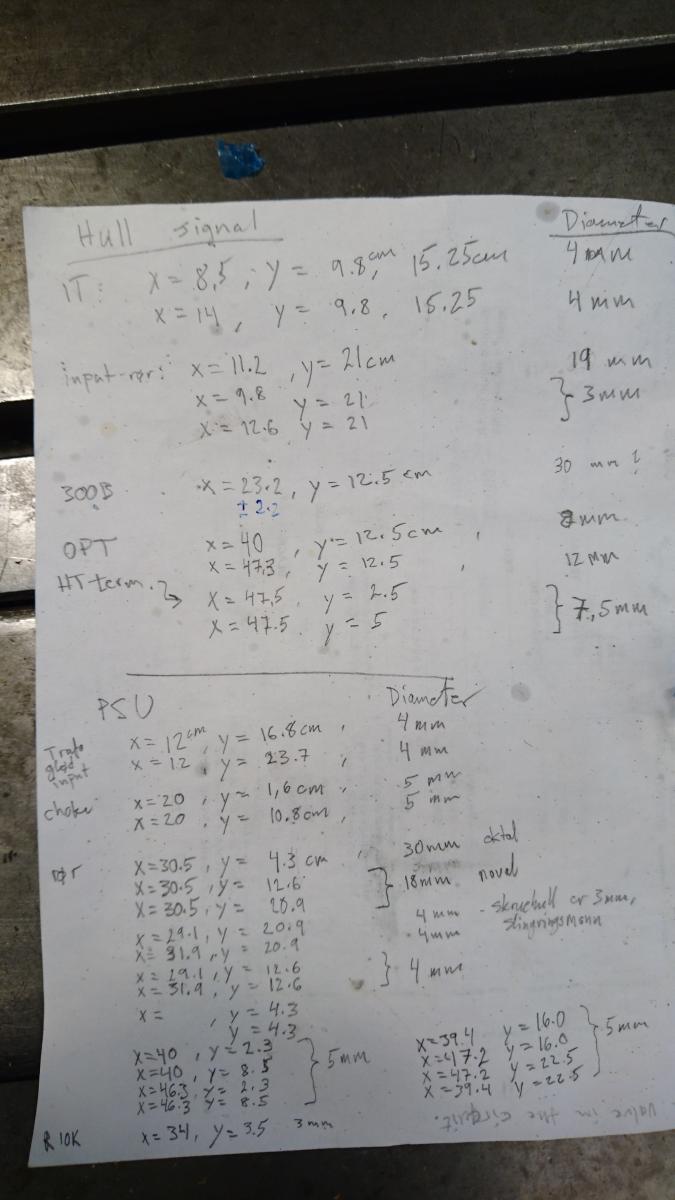 Hull signal Diameter
IT: x = 8,5 ; y = 9.8cm, 15.25cm 4 mm
x = 14 , y = 9.8 , 15.25 4 mm
input-rør: x = 11.2 , y = 21cm 19 mm
x = 9.8 y = 21 } 3mm
x = 12.6 y = 21
300B x = 23.2 , y = 12.5 cm 30 mm ?
± 2.2
OPT x = 40 , y = 12.5cm , 8mm
x = 47,3 , y = 12.5 , 12 mm
HT term. → x = 47,5 y = 2.5 } 7,5mm
x = 47.5 y = 5
PSU Diameter
Trafo x = 12cm , y = 16.8cm , 4 mm
gløд x = 12 , y = 23.7 , 4 mm
input
choke x = 20 , y = 1,6cm , 5 mm
x = 20 , y = 10.8cm , 5 mm
rør x = 30.5 , y = 4.3 cm , 30mm oktal
x = 30.5 , y = 12.6 } 18mm noval
x = 30.5 , y = 20.9
x = 29.1 , y = 20.9 4 mm - skruehull er 3mm,
x = 31.9 , y = 20.9 4mm slingringsmonn
x = 29.1 , y = 12.6 } 4 mm
x = 31.9 , y = 12.6
x = , y = 4.3
y = 4.3
x=40 , y = 2.3 } 5mm
x=40 , y = 8.5
x=46.3 , y = 2.3
x=46.3 y = 8.5
x=39.4 y = 16.0 } 5mm
x=47.2 y = 16.0
x=47.2 y = 22.5
x=39.4 y = 22.5
R 10K x = 34 , y = 3.5 3mm
value in the circuit.